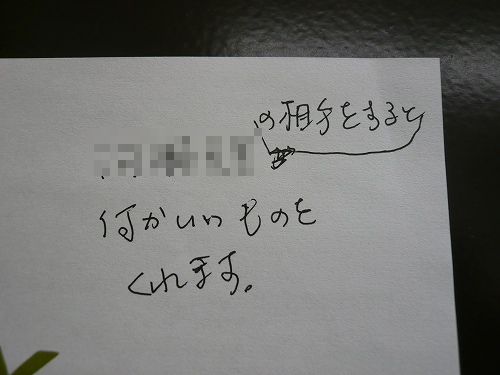 の相手をすると
何かいいものを
くれます。